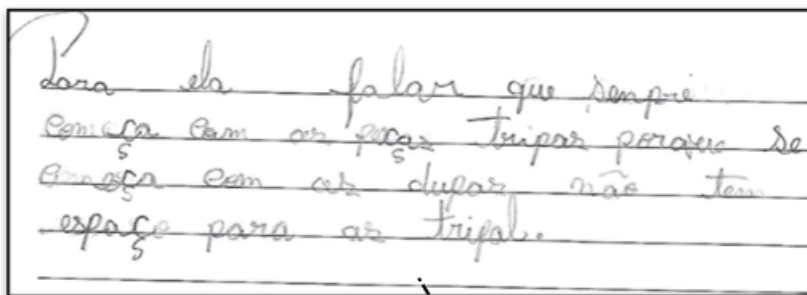 Para ela falar que senpre
começa com as peças tripas porque se
começa com as dupas não tem
espaço para as tripal.